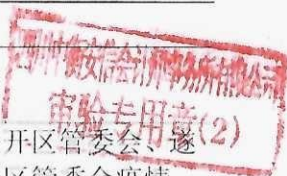 会计师事务所有限公司
审验专用章(2)
开区管委会、遂
区管委会疫情